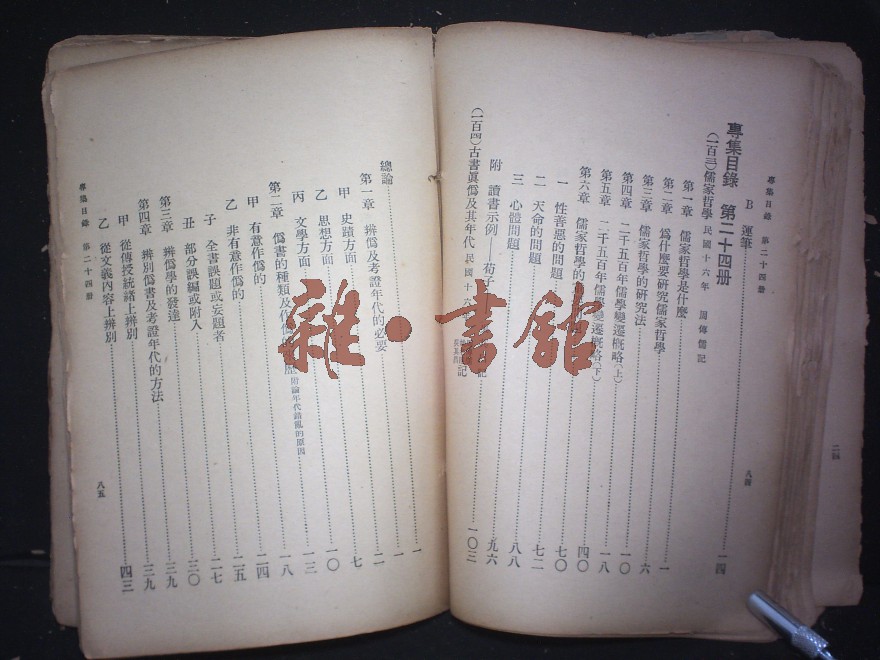 專集目錄 第二十四册
八四
B 運筆……一四
專集目錄 第二十四册
(一百三)儒家哲學 民國十六年 周傳儒記
第一章 儒家哲學是什麽……一
第二章 爲什麽要研究儒家哲學
第三章 儒家哲學的研究法……六
第四章 二千五百年儒學變遷概略(上)……一〇
第五章 二千五百年儒學變遷概略(下)……一八
第六章 儒家哲學的……四〇
一 性善惡的問題……七〇
二 天命的問題……七二
三 心體問題……八八
附 讀書示例——荀子……九六
(一百四)古書眞僞及其年代 民國十六 記……一〇三
總論……一
第一章 辨僞及考證年代的必要……二
甲 史蹟方面……七
乙 思想方面……一〇
丙 文學方面……一三
第二章 僞書的種類及作僞 附論年代錯亂的原因……一八
甲 有意作僞的……二四
乙 非有意作僞的……二五
子 全書誤題或妄題者……二七
丑 部分誤編或附入……三〇
第三章 辨僞學的發達……三九
第四章 辨別僞書及考證年代的方法……三九
甲 從傳授統緒上辨別……四三
乙 從文義內容上辨別
專集目錄 第二十四册
八五
二四
雜·書館